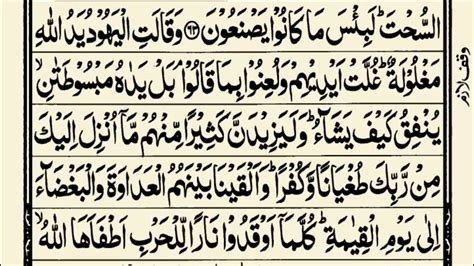 السُّحْتَ ؕ لَبِئْسَ مَا كَانُوْا يَصْنَعُوْنَ ﴿۶۳﴾ وَقَالَتِ الْيَهُوْدُ يَدُ اللّٰهِ
مَغْلُوْلَةٌ ؕ غُلَّتْ اَيْدِيْهِمْ وَلُعِنُوْا بِمَا قَالُوْا ۘ بَلْ يَدٰهُ مَبْسُوْطَتٰنِ ۙ
يُنْفِقُ كَيْفَ يَشَآءُ ؕ وَلَيَزِيْدَنَّ كَثِيْرًا مِّنْهُمْ مَّاۤ اُنْزِلَ اِلَيْكَ
مِنْ رَّبِّكَ طُغْيَانًا وَّكُفْرًا ؕ وَاَلْقَيْنَا بَيْنَهُمُ الْعَدَاوَةَ وَالْبَغْضَآءَ
اِلٰى يَوْمِ الْقِيٰمَةِ ؕ كُلَّمَاۤ اَوْقَدُوْا نَارًا لِّلْحَرْبِ اَطْفَاَهَا اللّٰهُ ۙ
وقف لازم